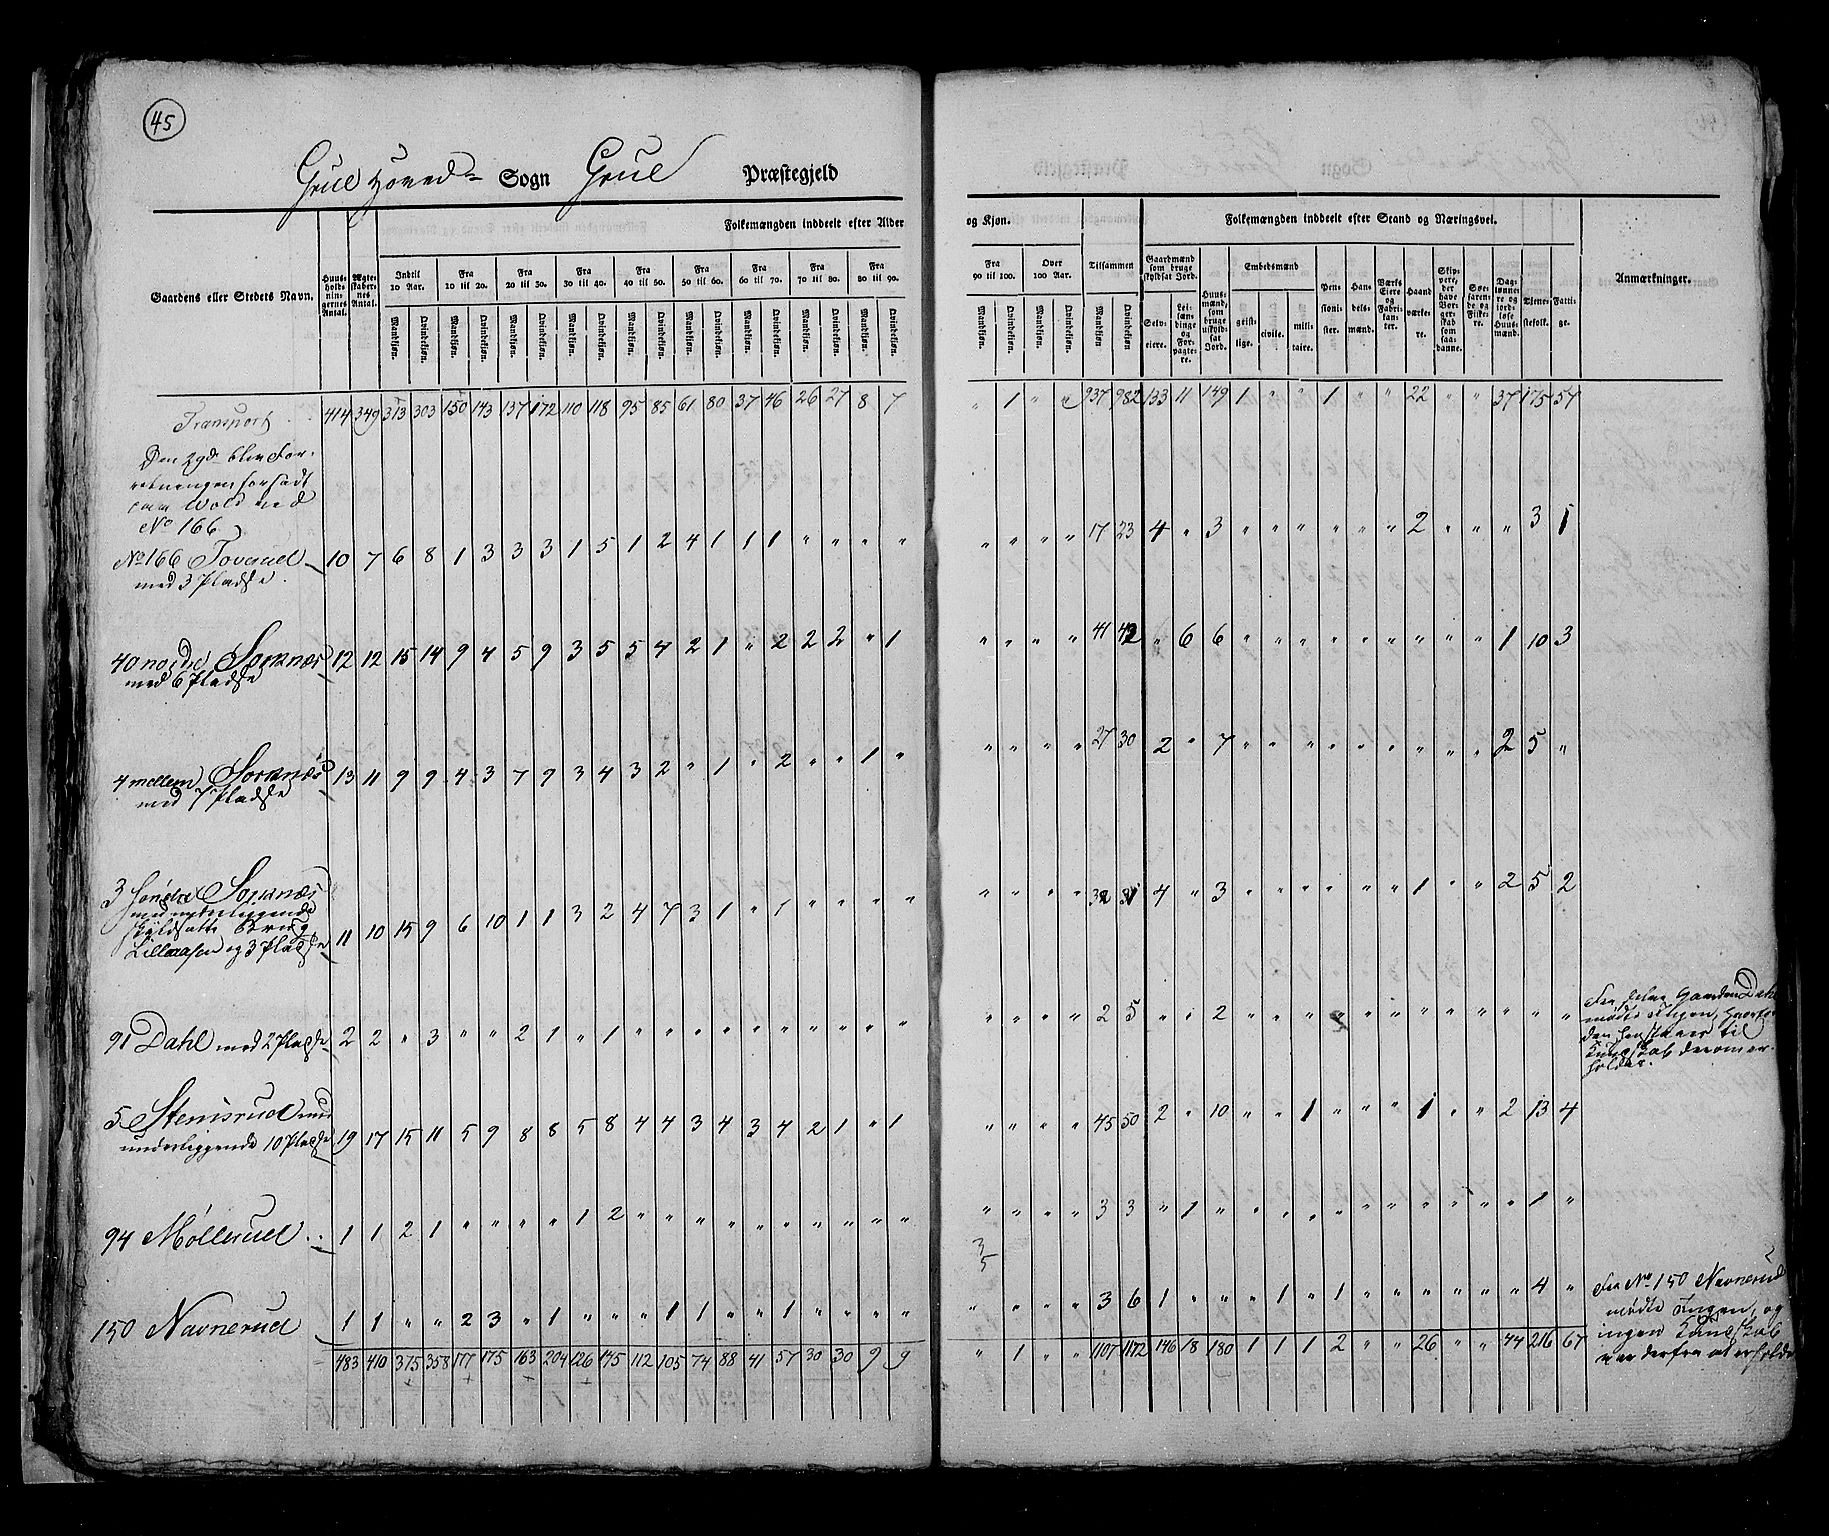 45
Grue Hoved- Sogn Grue Præstegjeld
Gaardens eller Stedets Navn. Huus-holdnin-gernes Antal. Ægte-skaber-nes Antal. Folkemængden inddeelt efter Alder
Indtil 10 Aar. Fra 10 til 20. Fra 20 til 30. Fra 30 til 40. Fra 40 til 50. Fra 50 til 60. Fra 60 til 70. Fra 70 til 80. Fra 80 til 90.
Mandkiøn. Qvindekiøn. Mandkiøn. Qvindekiøn. Mandkiøn. Qvindekiøn. Mandkiøn. Qvindekiøn. Mandkiøn. Qvindekiøn. Mandkiøn. Qvindekiøn. Mandkiøn. Qvindekiøn. Mandkiøn. Qvindekiøn. Mandkiøn. Qvindekiøn.
Transport 414 349 313 303 150 143 137 172 110 118 95 85 61 80 37 46 26 27 8 7
Den 2gde blev For-
retningen forsadt
paa Wold ved
No 166.
No 166 Toverud 10 7 6 8 1 3 3 3 1 5 1 2 4 1 1 1 " " " "
med 3 Pladse
40 nordre Sorknæs 12 12 15 14 9 4 5 9 3 5 5 4 2 1 " 2 2 2 " 1
med 6 Pladse
4 mellem Sorknæs 13 11 9 9 4 3 7 9 3 4 3 2 " 1 " 2 " " 1 "
med 7 Pladse
3 Søndre Sorknæs
med underliggende
skyldsatte
Lilleaasen og 3 Pladse 11 10 15 9 6 10 1 1 3 2 4 7 3 1 " 1 " " " "
91 Dahl med 2 Pladse 2 2 " 3 " " 2 1 " 1 " " " " " " " " " "
5 Stenisrud med
underliggende 10 Pladse 19 17 15 11 5 9 8 8 5 8 4 4 3 4 3 4 2 1 " 1
94 Møllerud 1 1 2 1 " " " " 1 2 " " " " " " " " " "
150 Navnerud 1 1 " " 2 3 " 1 " " " 1 1 " " 1 " " " "
483 410 375 358 177 175 163 204 126 145 112 105 74 88 41 57 30 30 9 9
og Kjøn. Tilsammen Folkemængden inddeelt efter Stand og Næringsvei. Anmærkninger.
Fra 90 til 100. Over 100 Aar. Gaardmænd som bruge skyldsat Jord. Huus-mænd, som bruge uskyld-sat Jord. Embedsmænd Pen-sioni-ster. Han-dels-mænd. Værks Eiere og Fabri-kan-ter. Haand-værke-re. Skip-pere, der have Bor-ger-skab som saa-danne. Søe-faren-de og Fiske-re. Dag-lønne-re og jord-løse Huus-mænd. Tjene-stefolk. Fatti-ge.
Mandkiøn. Qvindekiøn. Mandkiøn. Qvindekiøn. Mandkiøn. Qvindekiøn. Selv-eiere. Lei-læn-dinge og For-pagte-re. geist-lige. civile. mili-taire.
" 1 " " 937 982 133 11 149 1 " " 1 " " 22 " " 37 175 57
" " " " 17 23 4 " 3 " " " " " " 2 " " " 3 1
" " " " 41 42 " 6 6 " " " " " " " " " 1 10 3
" " " " 27 30 2 " 7 " " " " " " " " " 2 5 "
" " " " 32 31 4 " 3 " " " " " " 1 " " 2 5 2
" " " " 2 5 " 1 2 " " " " " " " " " " " "
Fra Gaarden Dahl
mødte Ingen, hvorfor
til
Kundskab derom er-
holdes.
" " " " 45 50 2 " 10 " " 1 " " " 1 " " 2 13 4
" " " " 3 3 " 1 " " " " " " " " " " " 1 "
3
5
" " " " 3 6 1 " " " 1 " 1 " " " " " " 4 "
Fra No 150 Navnerud
mødte Ingen, og
ingen Kundskab
var derfra at erholde
" 1 " " 1107 1172 146 18 180 1 1 1 2 " " 26 " " 44 216 67